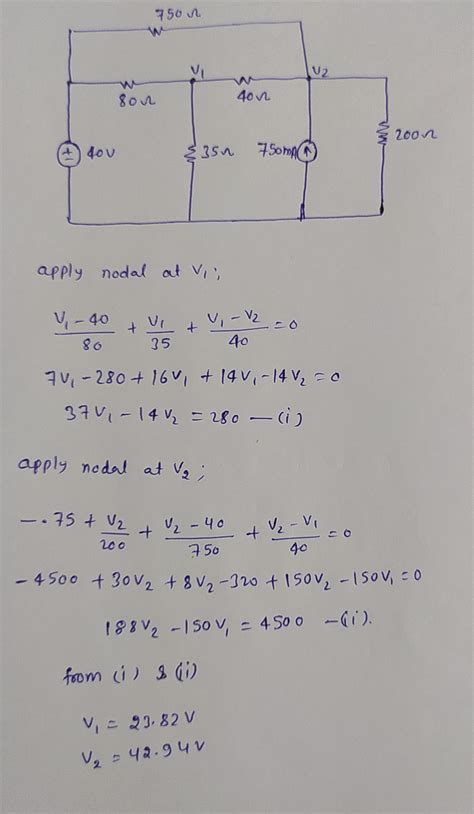 750Ω
V₁ V₂
80Ω 40Ω
40V 35Ω 750mA 200Ω
apply nodal at V₁;
V₁ - 40 / 80 + V₁ / 35 + V₁ - V₂ / 40 = 0
7V₁ - 280 + 16V₁ + 14V₁ - 14V₂ = 0
37V₁ - 14V₂ = 280 — (i)
apply nodal at V₂;
- .75 + V₂ / 200 + V₂ - 40 / 750 + V₂ - V₁ / 40 = 0
- 4500 + 30V₂ + 8V₂ - 320 + 150V₂ - 150V₁ = 0
188V₂ - 150V₁ = 4500 — (i).
from (i) & (ii)
V₁ = 23.82V
V₂ = 42.94V